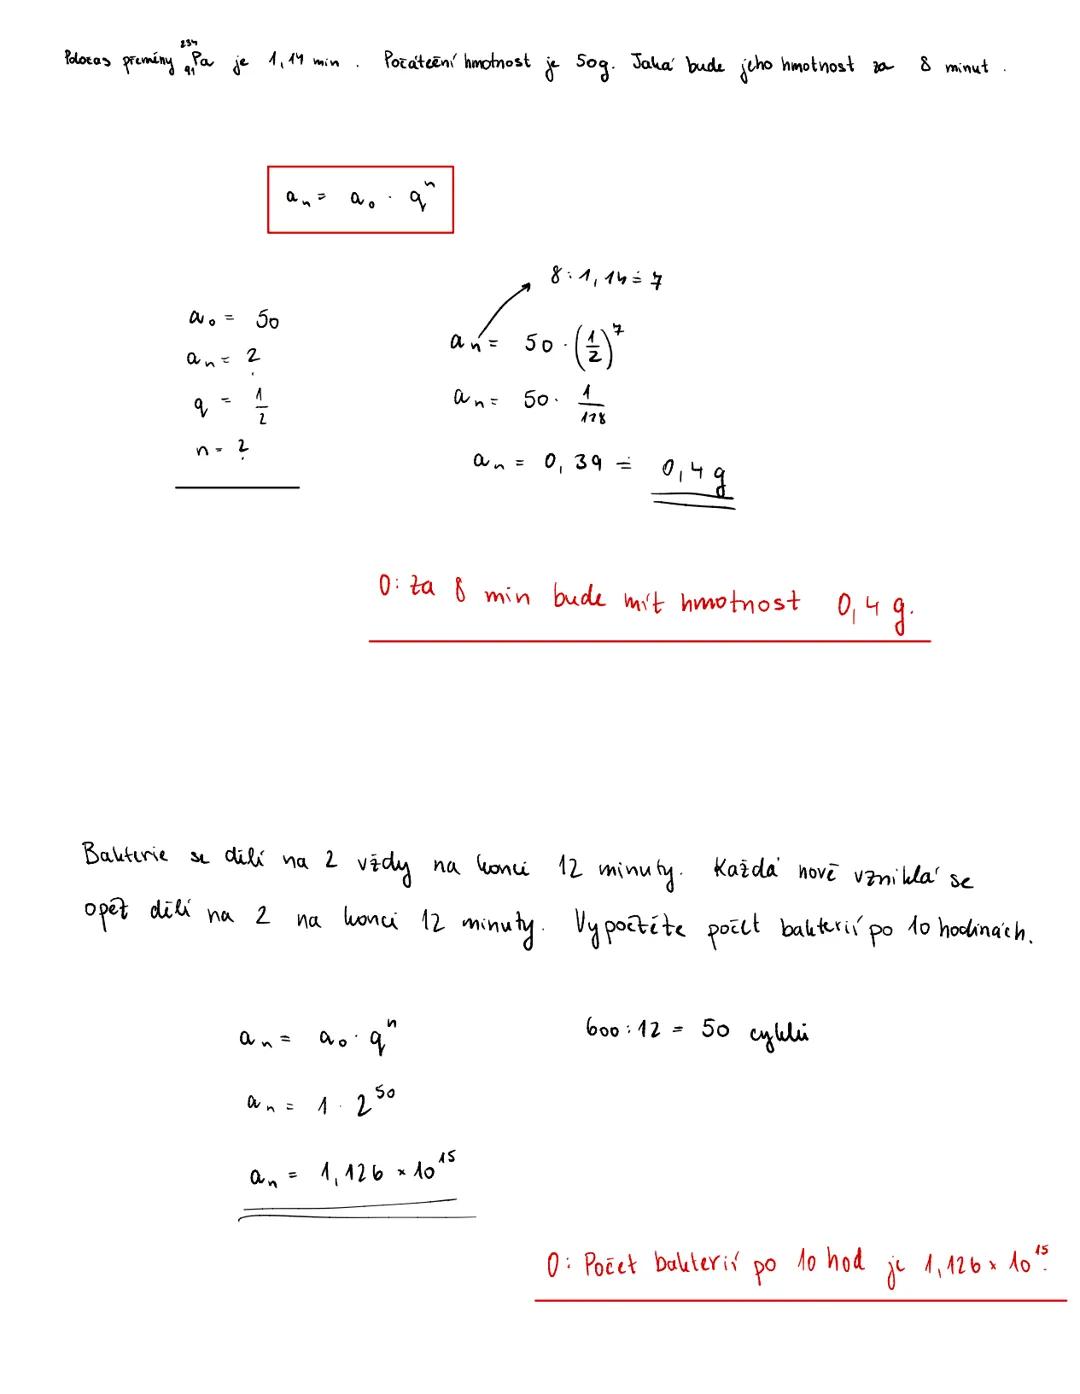 Poločas přeměny ²³⁴₉₁Pa je 1,14 min. Počáteční hmotnost je 50g. Jaká bude jeho hmotnost za 8 minut.
aₙ = a₀ · qⁿ
8 : 1,14 ≐ 7
a₀ = 50
aₙ = ?
q = 1/2
n = ?
aₙ = 50 · (1/2)⁷
aₙ = 50 · 1/128
aₙ = 0,39 ≐ 0,4 g
O: Za 8 min bude mít hmotnost 0,4 g.
Bakterie se dělí na 2 vždy na konci 12 minuty. Každá nově vzniklá se
opět dělí na 2 na konci 12 minuty. Vypočtěte počet bakterií po 10 hodinách.
aₙ = a₀ · qⁿ
600 : 12 = 50 cyklů
aₙ = 1 · 2⁵⁰
aₙ = 1,126 × 10¹⁵
O: Počet bakterií po 10 hod je 1,126 × 10¹⁵.